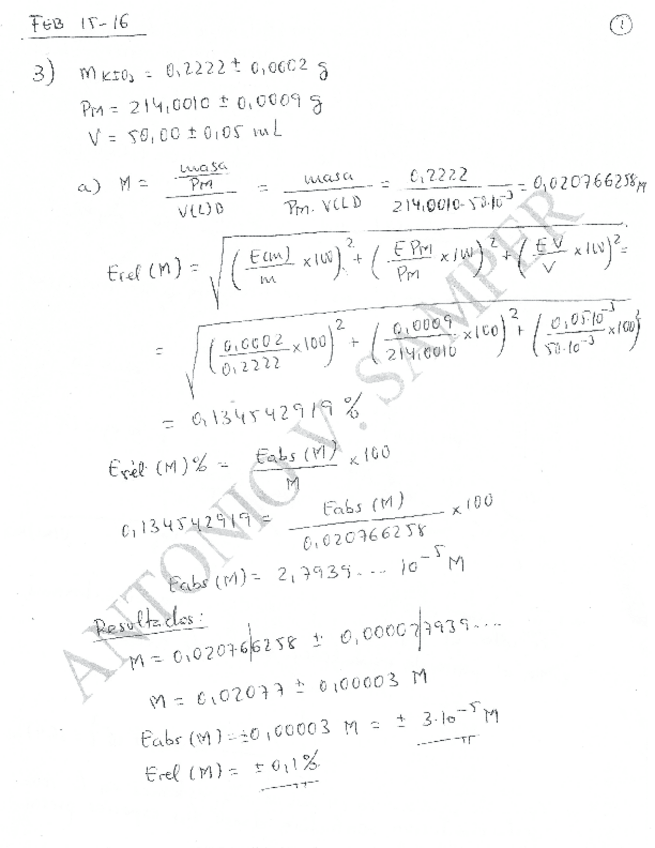 FEB 15-16
1
3) mKIO3 = 0,2222 ± 0,0002 g
PM = 214,0010 ± 0,0009 g
V = 50,00 ± 0,05 mL
a) M = (masa/PM)/V(L) = masa/(PM·V(L)) = 0,2222/(214,0010·50·10^-3) = 0,020766258 M
Erel (M) = √((E(m)/m ×100)^2 + (EPM/PM ×100)^2 + (EV/V ×100)^2) =
= √((0,0002/0,2222 ×100)^2 + (0,0009/214,0010 ×100)^2 + (0,05·10^-3/50·10^-3 ×100)^2)
= 0,134542919 %
Erel (M)% = Eabs (M)/M ×100
0,134542919 = Eabs (M)/0,020766258 ×100
Eabs (M) = 2,7939.... 10^-5 M
Resultados:
M = 0,020766258 ± 0,000027939....
M = 0,02077 ± 0,00003 M
Eabs (M) = ±0,00003 M = ± 3·10^-5 M
Erel (M) = ± 0,1%
ANTONIO V. SAMPER